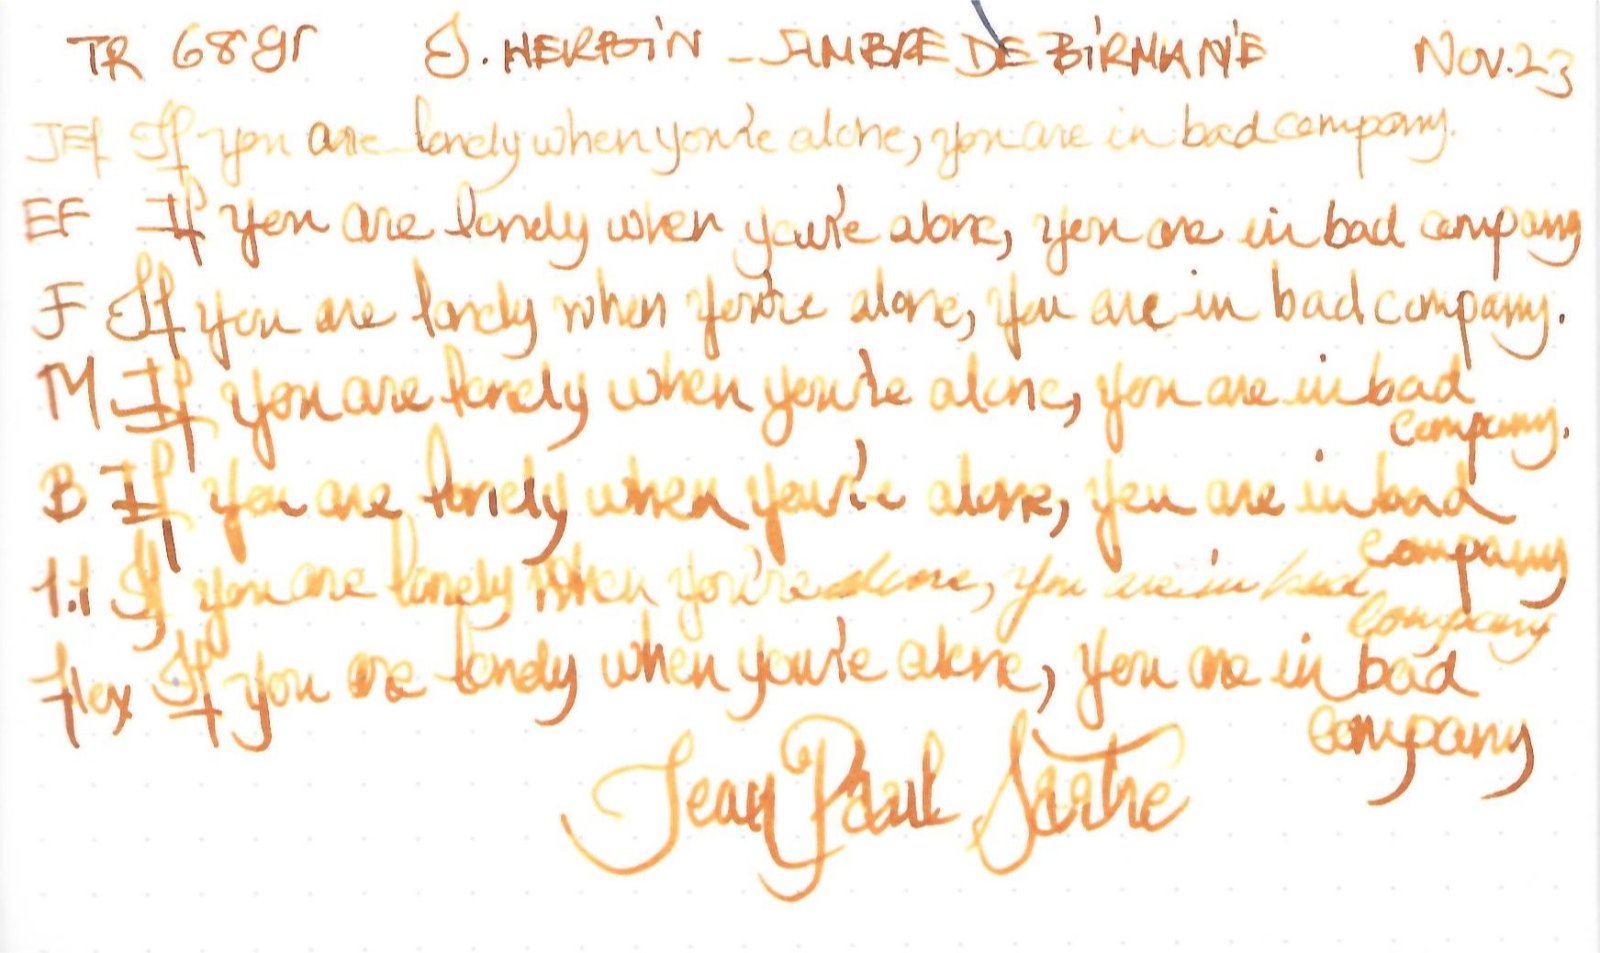 TR 68gr J. HERBIN - AMBRE DE BIRMANIE Nov.23
JEF If you are lonely when you're alone, you are in bad company.
EF If you are lonely when you're alone, you are in bad company
F If you are lonely when you're alone, you are in bad company.
M If you are lonely when you're alone, you are in bad
company.
B If you are lonely when you're alone, you are in bad
company
1.1 If you are lonely when you're alone, you are in bad
company
flex If you are lonely when you're alone, you are in bad
company
Jean Paul Sartre